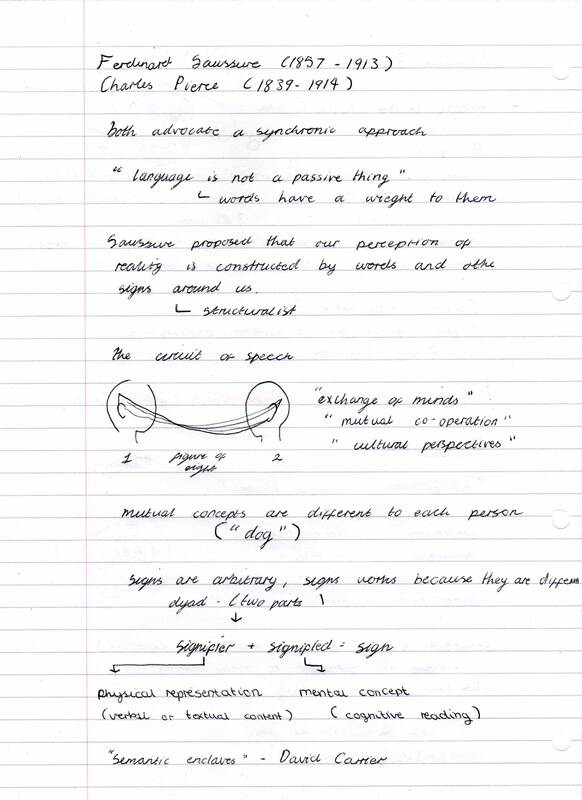 Ferdinard Saussure (1857 - 1913)
Charles Pierce (1839 - 1914)
both advocate a synchronic approach
"language is not a passive thing"
words have a wieght to them
Saussure proposed that our perception of
reality is constructed by words and othe
signs around us.
structuralist
the circuit of speech
"exchange of minds"
"mutual co-operation"
"cultural perspectives"
1 figure of eight 2
mutual concepts are different to each person
("dog")
signs are arbitrary, signs works because they are differen
dyad - (two parts)
signifier + signified = sign
physical representation mental concept
(verbal or textual content) (cognitive reading)
"semantic enclaves" - David Carrier